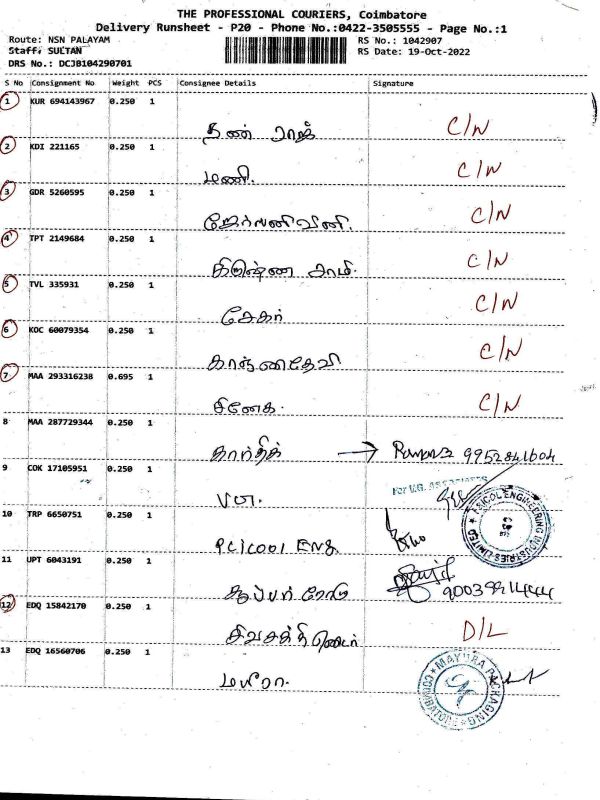 THE PROFESSIONAL COURIERS, Coimbatore
Delivery Runsheet - P20 - Phone No.:0422-3505555 - Page No.:1
Route: NSN PALAYAM RS No.: 1042907
Staff: SULTAN RS Date: 19-Oct-2022
DRS No.: DCJB104290701
S No Consignment No Weight PCS Consignee Details Signature
1 KUR 694143967 0.250 1
C/N
2 KDI 221165 0.250 1
மணி. C/N
3 GDR 5260595 0.250 1
C/N
4 TPT 2149684 0.250 1
கிருஷ்ண சாமி. C/N
5 TVL 335931 0.250 1
சேகர் C/N
6 KOC 60079354 0.250 1
C/N
7 MAA 293316238 0.695 1
சினேக. C/N
8 MAA 287729344 0.250 1
கார்திக் → 9952841604
9 COK 17105951 0.250 1
For V.G. ASSOCIATES
10 TRP 6650751 0.250 1
ENGINEERING INDUSTRIES LIMITED
11 UPT 6043191 0.250 1
12 EDQ 15842170 0.250 1
D/L
13 EDQ 16560706 0.250 1
மயூரா.
MAYURA PACKAGING COIMBATORE